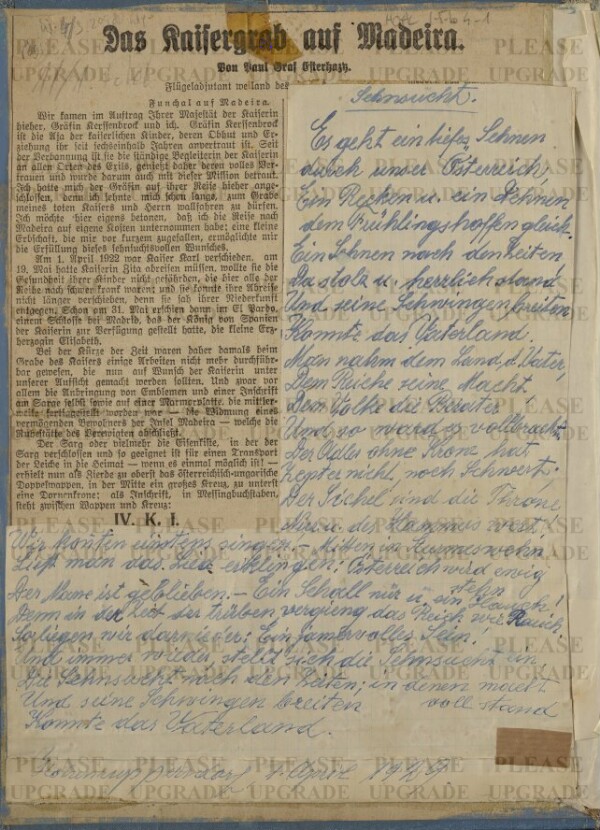 Das Kaisergrab auf Madeira.
Von Paul Graf Esterhazy.
Flügeladjutant weiland des
Funchal auf Madeira.
Wir kamen im Auftrag Ihrer Majestät der Kaiserin
hieher, Gräfin Kerssenbrock und ich. Gräfin Kerssenbrock
ist die Aja der kaiserlichen Kinder, deren Obhut und Er-
ziehung ihr seit sechseinhalb Jahren anvertraut ist. Seit
der Verbannung ist sie die ständige Begleiterin der Kaiserin
an allen Orten des Exils, genießt daher deren volles Ver-
trauen und wurde darum auch mit dieser Mission betraut.
Ich hatte mich der Gräfin auf ihrer Reise hieher ange-
schlossen, denn ich sehnte mich schon lange, zum Grabe
meines toten Kaisers und Herrn wallfahren zu dürfen.
Ich möchte hier eigens betonen, daß ich die Reise nach
Madeira auf eigene Kosten unternommen habe; eine kleine
Erbschaft, die mir vor kurzem zugefallen, ermöglichte mir
die Erfüllung dieses sehnsuchtsvollen Wunsches.
Am 1. April 1922 war Kaiser Karl verschieden, am
19. Mai hatte Kaiserin Zita abreisen müssen, wollte sie die
Gesundheit ihrer Kinder nicht gefährden, die hier alle der
Reihe nach schwerkrank waren und sie konnte ihre Abreise
nicht länger verschieben, denn sie sah ihrer Niederkunft
entgegen. Schon am 31. Mai erschien dann im El Pardo,
einem Schlosse bei Madrid, das der König von Spanien
der Kaiserin zur Verfügung gestellt hatte, die kleine Erz-
herzogin Elisabeth.
Bei der Kürze der Zeit waren daher damals beim
Grabe des Kaisers einige Arbeiten nicht mehr durchführ-
bar gewesen, die nun auf Wunsch der Kaiserin unter
unserer Aufsicht gemacht werden sollten. Und zwar vor
allem die Anbringung von Emblemen und einer Inschrift
am Sarge selbst sowie auf einer Marmorplatte, die mittler-
weile fertiggestellt worden war — die Widmung eines
vermögenden Bewohners der Insel Madeira — welche die
Ruhestätte des Verewigten abschließt.
Der Sarg oder vielmehr die Eisenkiste, in der der
Sarg verschlossen und so geeignet ist für einen Transport
der Leiche in die Heimat — wenn es einmal möglich ist! —
erhielt nun als Zierde zu oberst das österreichisch-ungarische
Doppelwappen, in der Mitte ein großes Kreuz, zu unterst
eine Dornenkrone; als Inschrift, in Messingbuchstaben,
steht zwischen Wappen und Kreuz:
IV. K. I.
Sehnsucht.
Es geht ein tiefes Sehnen
durch unser Österreich,
Ein Recken u. ein Dehnen
dem Frühlingshoffen gleich.
Ein Sehnen nach den Zeiten
Da stolz u. herrlich stand
Und seine Schwingen breiten
Konnte das Vaterland.
Man nahm dem Land d. Vater,
Dem Reiche seine Macht.
Dem Volke die Berater
Und so ward es vollbracht.
Der Adler ohne Krone hat
Zepter nicht noch Schwert;
Der Sichel sind die Throne
u. des Hammers wert!
Wir konnten einstens singen! Mitten im
Ließ man das Lied erklingen: Österreich wird ewig
stehen
Der Name ist geblieben. – Ein Schall nur u. ein Hauch!
Denn in der Zeit der trüben verging das Reich wie Rauch.
So liegen wir darnieder: Ein jamervolles Sein!
Und immer wieder stellt sich die Sehnsucht ein,
Die Sehnsucht nach den Zeiten, in denen macht
voll stand
Und seine Schwingen breiten
Konnte das Vaterland.
April
PLEASE UPGRADE